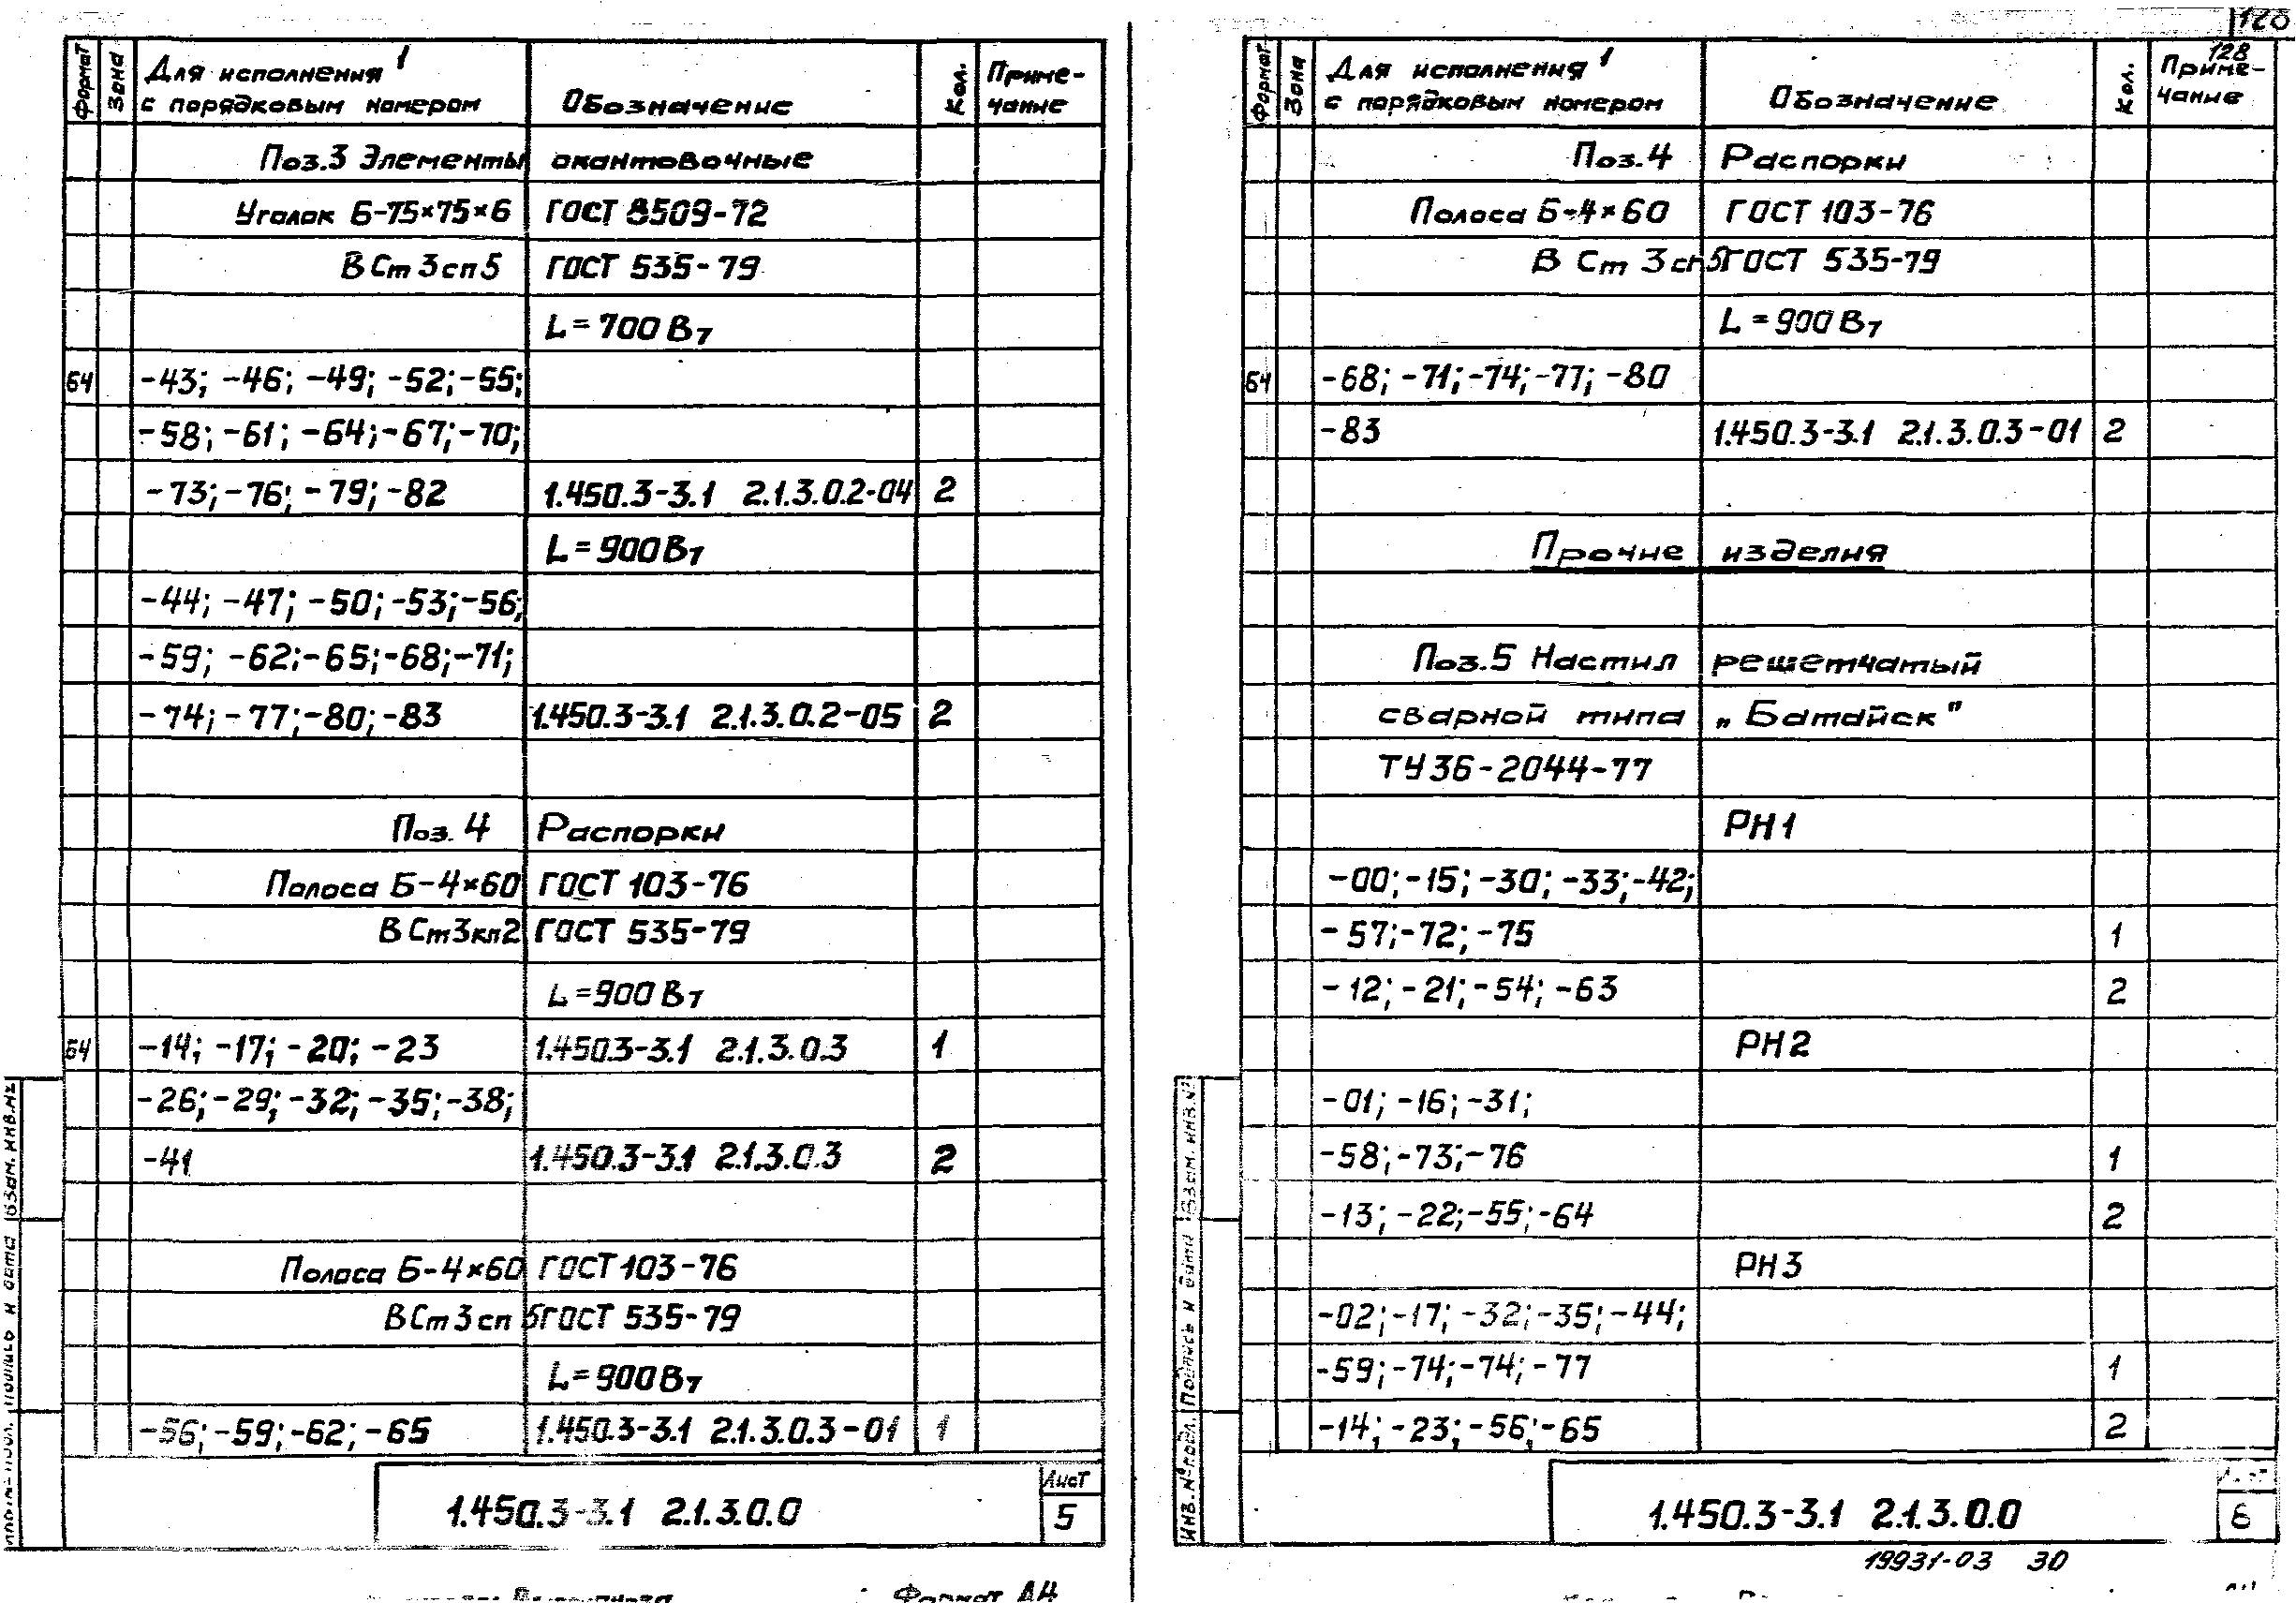 Формат Зона Для исполнения 1 Обозначение Кол. Приме-
с порядковым номером чание
Поз.3 Элементы окантовочные
Уголок Б-75×75×6 ГОСТ 8509-72
В Ст 3сп5 ГОСТ 535-79
L=700 Вт
БЧ -43; -46; -49; -52; -55;
-58; -61; -64; -67; -70;
-73; -76; -79; -82 1.450.3-3.1 2.1.3.0.2-04 2
L=900 Вт
-44; -47; -50; -53; -56;
-59; -62; -65; -68; -71;
-74; -77; -80; -83 1.450.3-3.1 2.1.3.0.2-05 2
Поз. 4 Распорки
Полоса Б-4×60 ГОСТ 103-76
В Ст3кп2 ГОСТ 535-79
L=900 Вт
БЧ -14; -17; -20; -23 1.450.3-3.1 2.1.3.0.3 1
-26; -29; -32; -35; -38;
-41 1.450.3-3.1 2.1.3.0.3 2
Полоса Б-4×60 ГОСТ 103-76
В Ст 3 сп 5 ГОСТ 535-79
L=900 Вт
-56; -59; -62; -65 1.450.3-3.1 2.1.3.0.3-01 1
Взам. инв.№
1.450.3-3.1 2.1.3.0.0 Лист
5
Формат А4
128
Формат Зона Для исполнения 1 Обозначение Кол. Приме-
с порядковым номером чание
Поз.4 Распорки
Полоса Б-4×60 ГОСТ 103-76
В Ст 3сп5 ГОСТ 535-79
L=900 Вт
БЧ -68; -71; -74; -77; -80
-83 1.450.3-3.1 2.1.3.0.3-01 2
Прочие изделия
Поз.5 Настил решетчатый
сварной типа „Батайск"
ТУ36-2044-77
РН1
-00; -15; -30; -33; -42;
-57; -72; -75 1
-12; -21; -54; -63 2
РН2
-01; -16; -31;
-58; -73; -76 1
-13; -22; -55; -64 2
РН3
-02; -17; -32; -35; -44;
-59; -74; -74; -77 1
-14; -23; -56; -65 2
Инв.№подл. Подпись и дата Взам. инв.№
1.450.3-3.1 2.1.3.0.0 Лист
6
19931-03 30